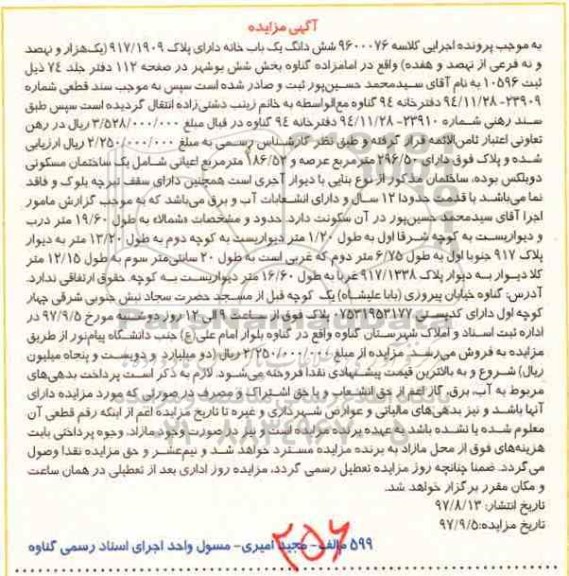 آگهی مزایده
به موجب پرونده اجرایی کلاسه 9600076 شش دانگ یک باب خانه دارای پلاک 917/1909 (یک‌هزار و نهصد
و نه فرعی از نهصد و هفده) واقع در امامزاده گناوه بخش شش بوشهر در صفحه 112 دفتر جلد 74 ذیل
ثبت 10596 به نام آقای سیدمحمد حسین‌پور ثبت و صادر شده است سپس به موجب سند قطعی شماره
23909- 94/11/28 دفترخانه 94 گناوه مع‌الواسطه به خانم زینب دشتی‌زاده انتقال گردیده است سپس طبق
سند رهنی شماره 23910- 94/11/28 دفترخانه 94 گناوه در قبال مبلغ 3/528/000/000 ریال در رهن
تعاونی اعتبار ثامن‌الائمه قرار گرفته و طبق نظر کارشناس رسمی به مبلغ 2/250/000/000 ریال ارزیابی
شده و پلاک فوق دارای 296/50 متر مربع عرصه و 186/52 مترمربع اعیانی شامل یک ساختمان مسکونی
دوبلکس بوده، ساختمان مذکور از نوع بنایی با دیوار آجری است همچنین دارای سقف تیرچه بلوک و فاقد
نما می‌باشد با قدمت حدودا 12 سال و دارای انشعابات آب و برق می‌باشد که به موجب گزارش مامور
اجرا آقای سیدمحمد حسین‌پور در آن سکونت دارد. حدود و مشخصات «شمالا» به طول 19/60 متر درب
و دیواریست به کوچه شرقا اول به طول 1/20 متر دیواریست به کوچه دوم به طول 13/20 متر به دیوار
پلاک 917 جنوبا اول به طول 6/75 متر دوم که غربی است به طول 20 سانتی‌متر سوم به طول 12/15 متر
کلا دیوار به دیوار پلاک 917/1338 غربا به طول 16/60 متر دیواریست به کوچه. حقوق ارتفاقی ندارد.
آدرس: گناوه خیابان پیروزی (بابا علیشاه) یک کوچه قبل از مسجد حضرت سجاد نبش جنوبی شرقی چهار
کوچه اول دارای کدپستی 07531953177 پلاک فوق از ساعت 9 الی 12 روز دوشنبه مورخ 97/9/5 در
اداره ثبت اسناد و املاک شهرستان گناوه واقع در گناوه بلوار امام علی(ع) جنب دانشگاه پیام‌نور از طریق
مزایده به فروش می‌رسد. مزایده از مبلغ 2/250/000/000 ریال (دو میلیارد و دویست و پنجاه میلیون
ریال) شروع و به بالاترین قیمت پیشنهادی نقدا فروخته می‌شود. لازم به ذکر است پرداخت بدهی‌های
مربوط به آب، برق، گاز اعم از حق انشعاب و یا حق اشتراک و مصرف در صورتی که مورد مزایده دارای
آنها باشد و نیز بدهی‌های مالیاتی و عوارض شهرداری و غیره تا تاریخ مزایده اعم از اینکه رقم قطعی آن
معلوم شده یا نشده باشد به عهده برنده مزایده است و نیز در صورت وجود مازاد، وجوه پرداختی بابت
هزینه‌های فوق از محل مازاد به برنده مزایده مسترد خواهد شد و نیم‌عشر و حق مزایده نقدا وصول
می‌گردد. ضمنا چنانچه روز مزایده تعطیل رسمی گردد، مزایده روز اداری بعد از تعطیلی در همان ساعت
و مکان مقرر برگزار خواهد شد.
تاریخ انتشار: 97/8/13
تاریخ مزایده: 97/9/5
599 م/الف- مجید امیری- مسول واحد اجرای اسناد رسمی گناوه
256